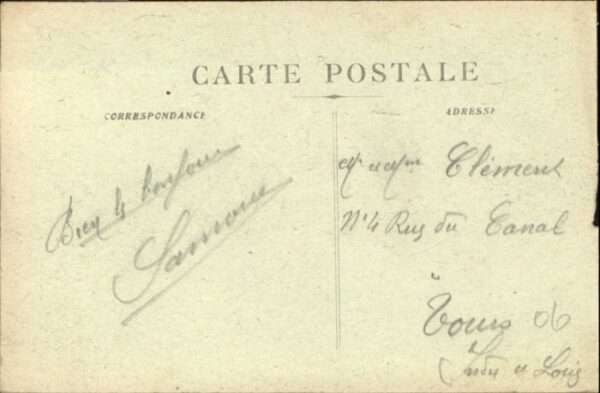 CARTE POSTALE
CORRESPONDANCE
ADRESSE
Bien le bonjour
Mr et Mme Clément
N° 4 Rue du Canal
Tours 06
Indre et Loire